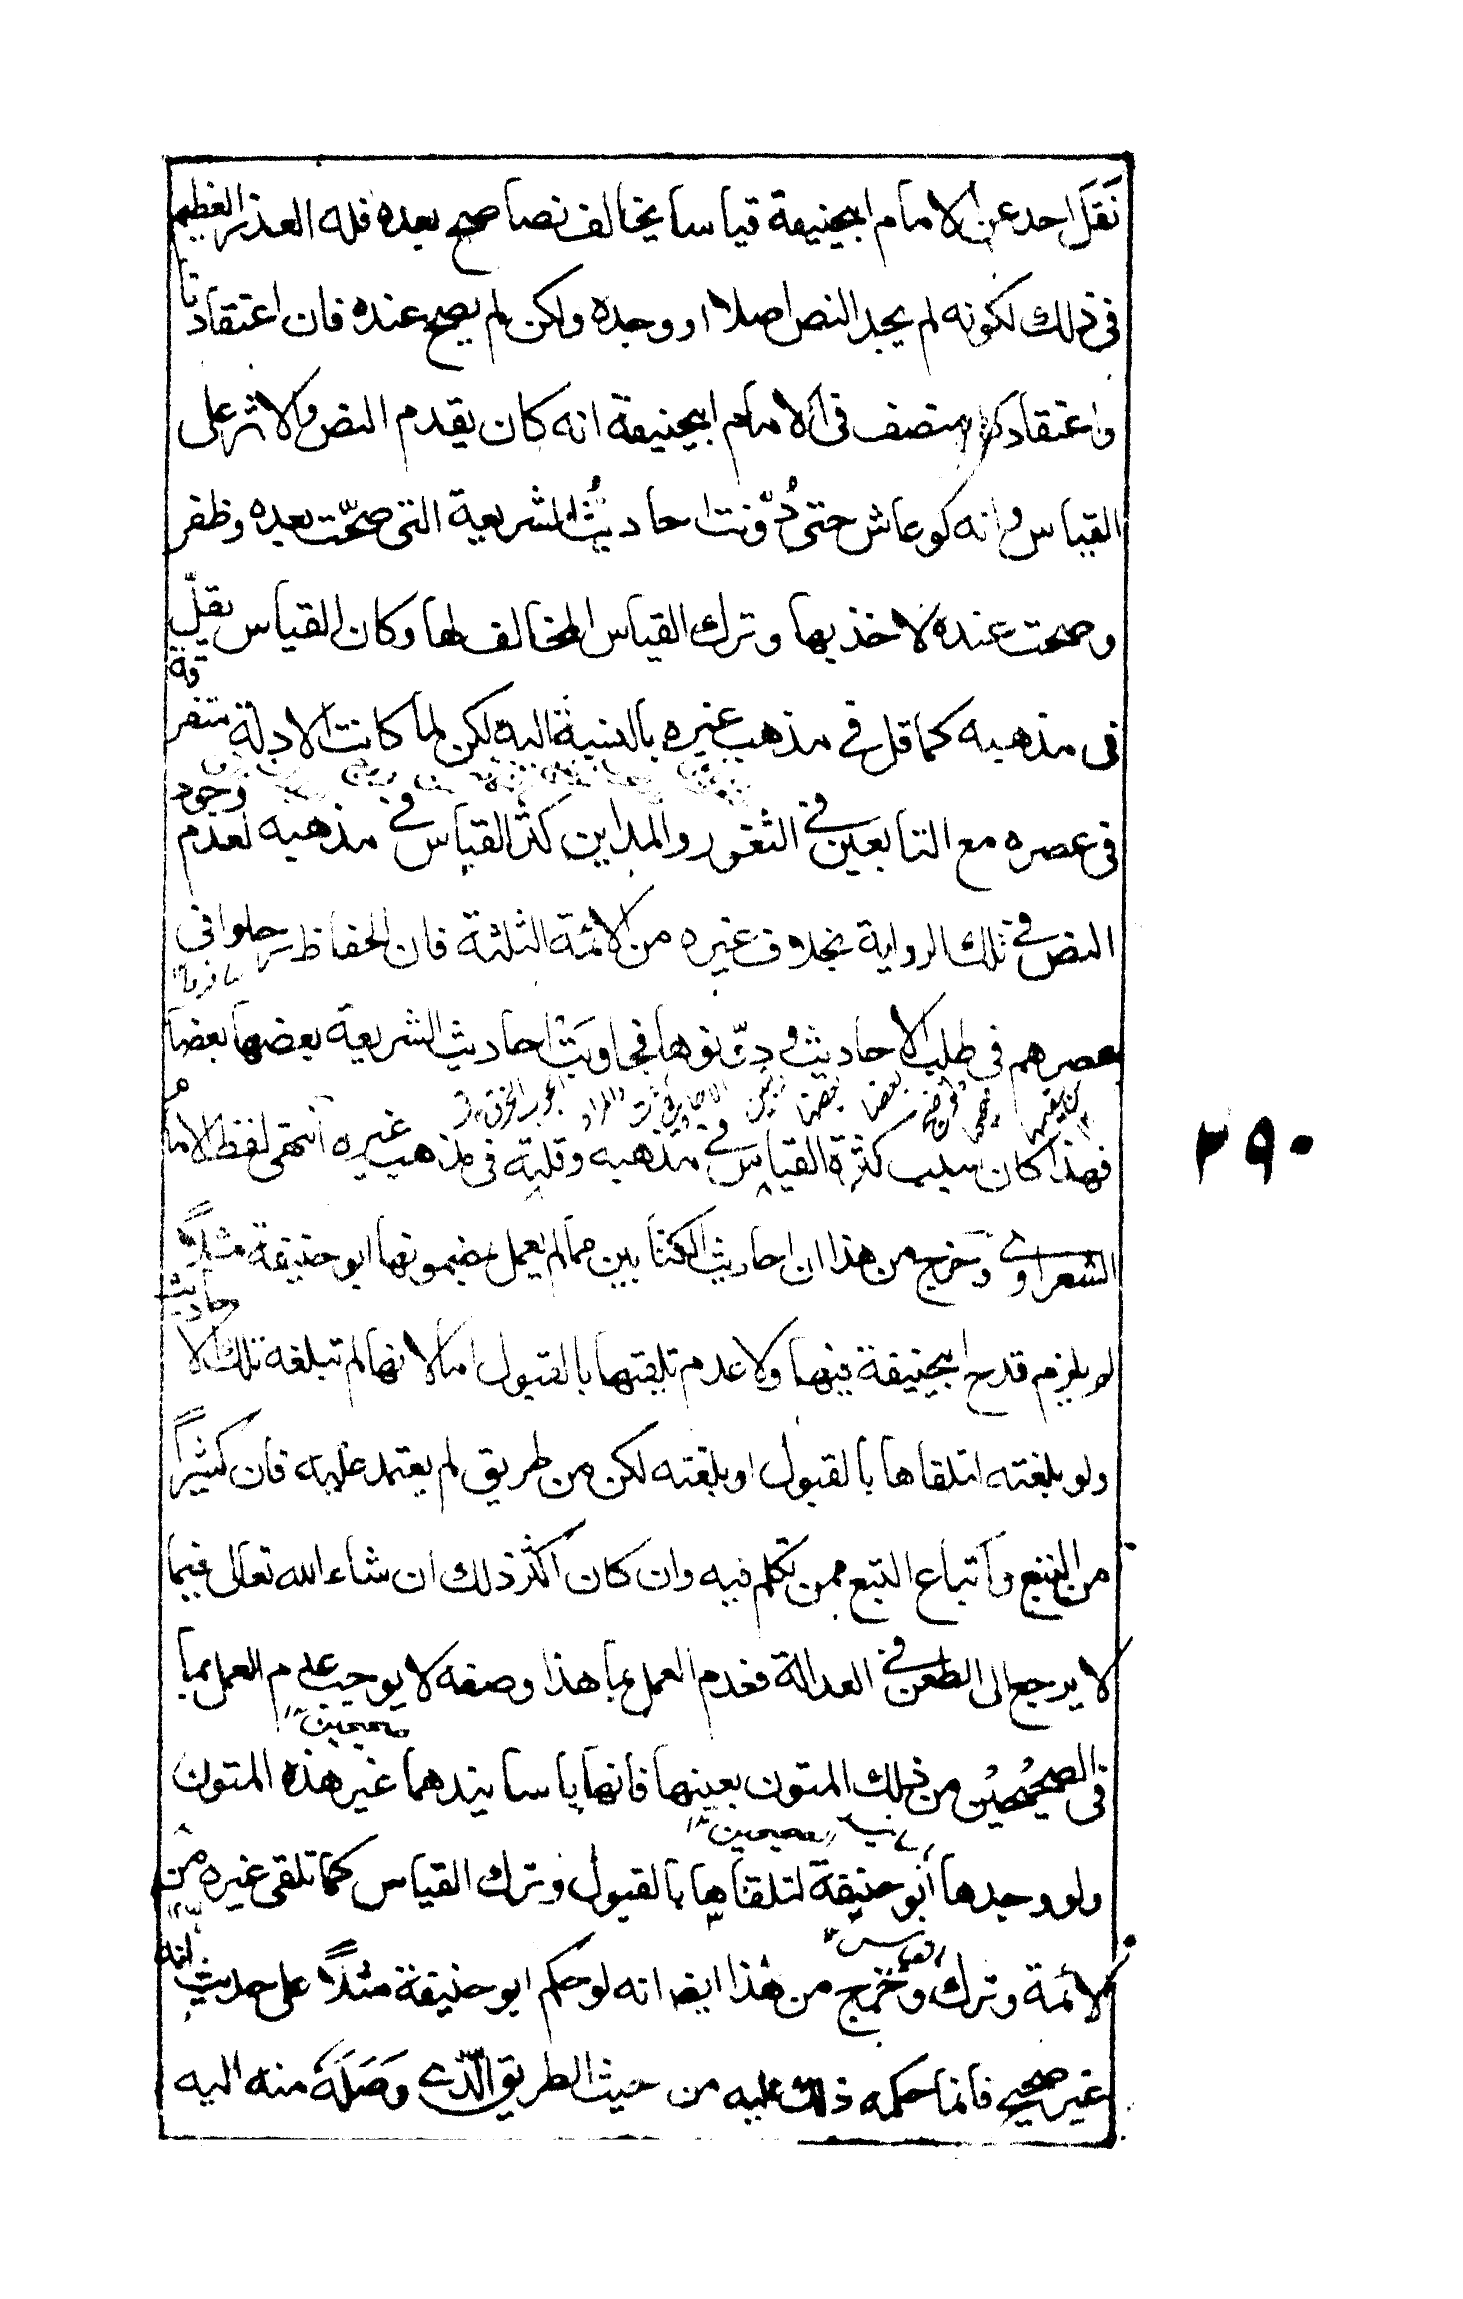 نَقَلَ احد عن الامام ابيحنيفة قياسا يخالف نصا صح بعده فله العذر العظيم
فى ذلك لكونه لم يجد النص اصلا او وجده ولكن لم يصح عنده فان اعتقادنا
واعتقاد كل منصف فى الامام ابيحنيفة انه كان يقدم النص والاثر على
القياس وانه لو عاش حتى دُوّنت احاديثُ الشريعة التى صحّت بعده وظفر
وصحت عنده لاخذ بها وترك القياس المخالف لها وكان القياس يقلّ
فى مذهبه كما قل فى مذهب غيره بالنسبة اليه لكن لما كانت الادلة متفرقة
فى عصره مع التابعين فى الثغور والمداين كثر القياس فى مذهبه لعدم وجود
النص فى تلك الرواية بخلاف غيره من الائمة الثلثة فان الحفاظ رحلوا فى
عصرهم فى طلب الاحاديث ودوّنوها فجاوبَتْ احاديث الشريعة بعضها بعضا
فهذا كان سبب كثرة القياس فى مذهبه وقلته فى مذهب غيره انتهى لفظ الامام
الشعراوى وخرج من هذا ان احاديث الكتابين مما لم يعمل بمضمونها ابو حنيفة مثلاً
لو يلزم قدح ابيحنيفة فيها ولا عدم تلقيها بالقبول اما لانها لم تبلغه تلك الاحاديث
ولو بلغته لتلقاها بالقبول او بلغته لكن من طريق لم يعتمد عليه فان كثيراً
من التبع واتباع التبع ممن تكلم فيه وان كان اكثر ذلك ان شاء الله تعالى فيما
لا يرجع الى الطعن فى العدالة فعدم العمل بما هذا وصفه لا يوجب عدم العمل بما
صحيحين ١٢
فى الصحيحين من ذلك المتون بعينها فانها باسانيدهما غير هذه المتون
صحيحين ١٢
ولو وجدها ابو حنيفة لتلقاها بالقبول وترك القياس كما تلقى غيره من
القياس ١٢
الائمة وترك وخرج من هذا ايضا انه لو حكم ابو حنيفة مثلاً على حديث انه
غير صحيح فانما حكمه ذلك عليه من حيث الطريق الّذى وَصَلَهُ منه اليه
٢٩٠